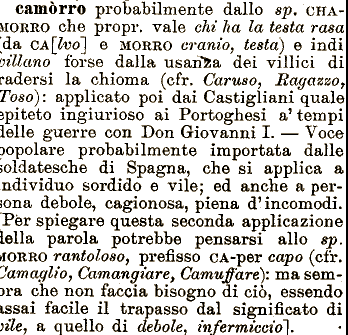 camòrro probabilmente dallo sp. CHA-
MORRO che propr. vale chi ha la testa rasa
[da CA[lvo] e MORRO cranio, testa) e indi
villano forse dalla usanza dei villici di
radersi la chioma (cfr. Caruso, Ragazzo,
Toso): applicato poi dai Castigliani quale
epiteto ingiurioso ai Portoghesi a' tempi
delle guerre con Don Giovanni I. — Voce
popolare probabilmente importata dalle
soldatesche di Spagna, che si applica a
individuo sordido e vile; ed anche a per-
sona debole, cagionosa, piena d'incomodi.
[Per spiegare questa seconda applicazione
della parola potrebbe pensarsi allo sp.
MORRO rantoloso, prefisso CA-per capo (cfr.
Camaglio, Camangiare, Camuffare): ma sem-
bra che non faccia bisogno di ciò, essendo
assai facile il trapasso dal significato di
vile, a quello di debole, infermiccio].